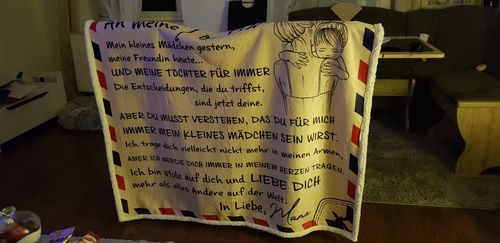 An meine
Mein kleines Mädchen gestern,
meine Freundin heute...
UND MEINE TOCHTER FÜR IMMER
Die Entscheidungen, die du triffst,
sind jetzt deine.
ABER DU MUSST VERSTEHEN, DAS DU FÜR MICH
IMMER MEIN KLEINES MÄDCHEN SEIN WIRST.
Ich trage dich vielleicht nicht mehr in meinen Armen,
ABER ICH WERDE DICH IMMER IN MEINEM HERZEN TRAGEN.
Ich bin stolz auf dich und LIEBE DICH
mehr als alles Andere auf der Welt.
In Liebe, Mama